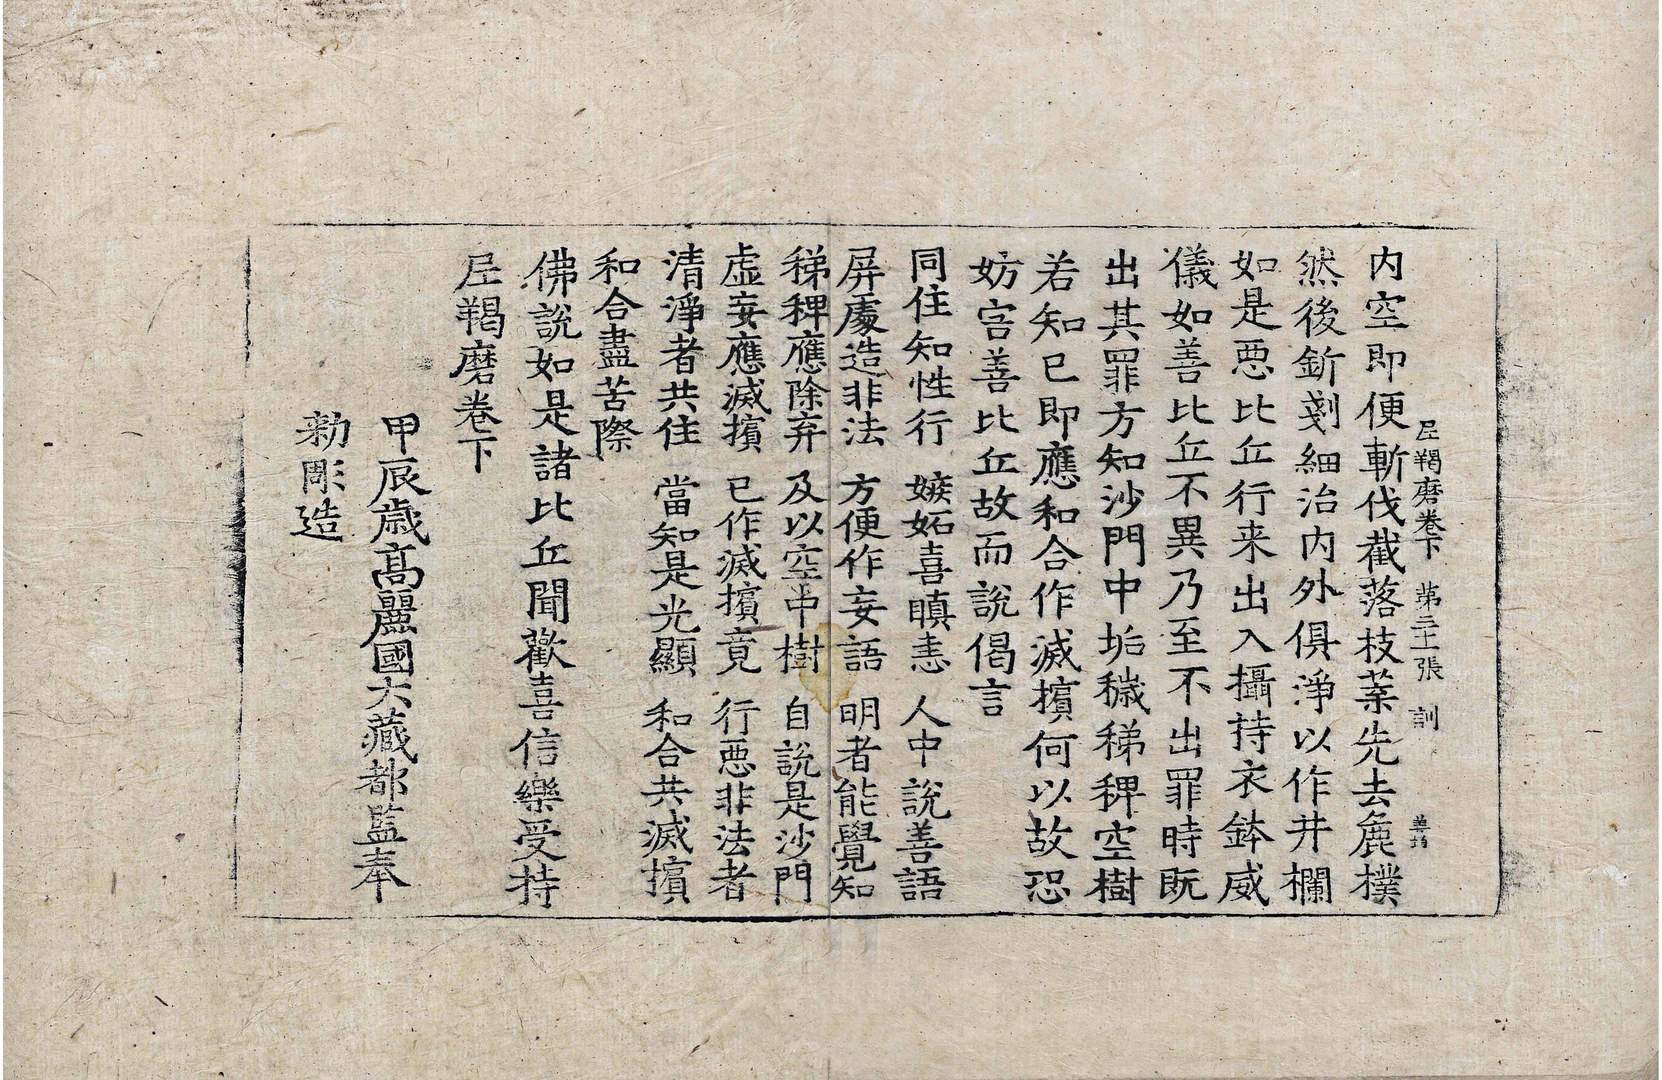 尼羯磨卷下 第三十張 訓
內空即便斬伐截落枝葉先去麁樸
然後釿剗細治內外俱淨以作井欄
如是惡比丘行来出入攝持衣鉢威
儀如善比丘不異乃至不出罪時既
出其罪方知沙門中垢穢稊稗空樹
若知已即應和合作滅擯何以故恐
妨害善比丘故而說偈言
同住知性行 嫉妬喜瞋恚 人中說善語
屏處造非法 方便作妄語 明者能覺知
稊稗應除弃 及以空中樹 自說是沙門
虛妄應滅擯 已作滅擯竟 行惡非法者
清淨者共住 當知是光顯 和合共滅擯
和合盡苦際
佛說如是諸比丘聞歡喜信樂受持
尼羯磨卷下
甲辰歲高麗國大藏都監奉
勑彫造